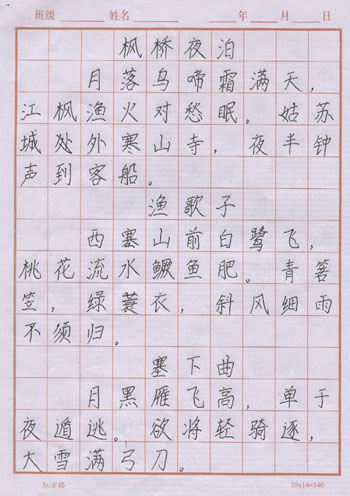 班级 姓名 年 月 日
枫桥夜泊
月落乌啼霜满天，
江枫渔火对愁眠。姑苏
城处外寒山寺，夜半钟
声到客船。
渔歌子
西塞山前白鹭飞，
桃花流水鳜鱼肥。青箬
笠，绿蓑衣，斜风细雨
不须归。
塞下曲
月黑雁飞高，单于
夜遁逃。欲将轻骑逐，
大雪满弓刀。
10x14=140